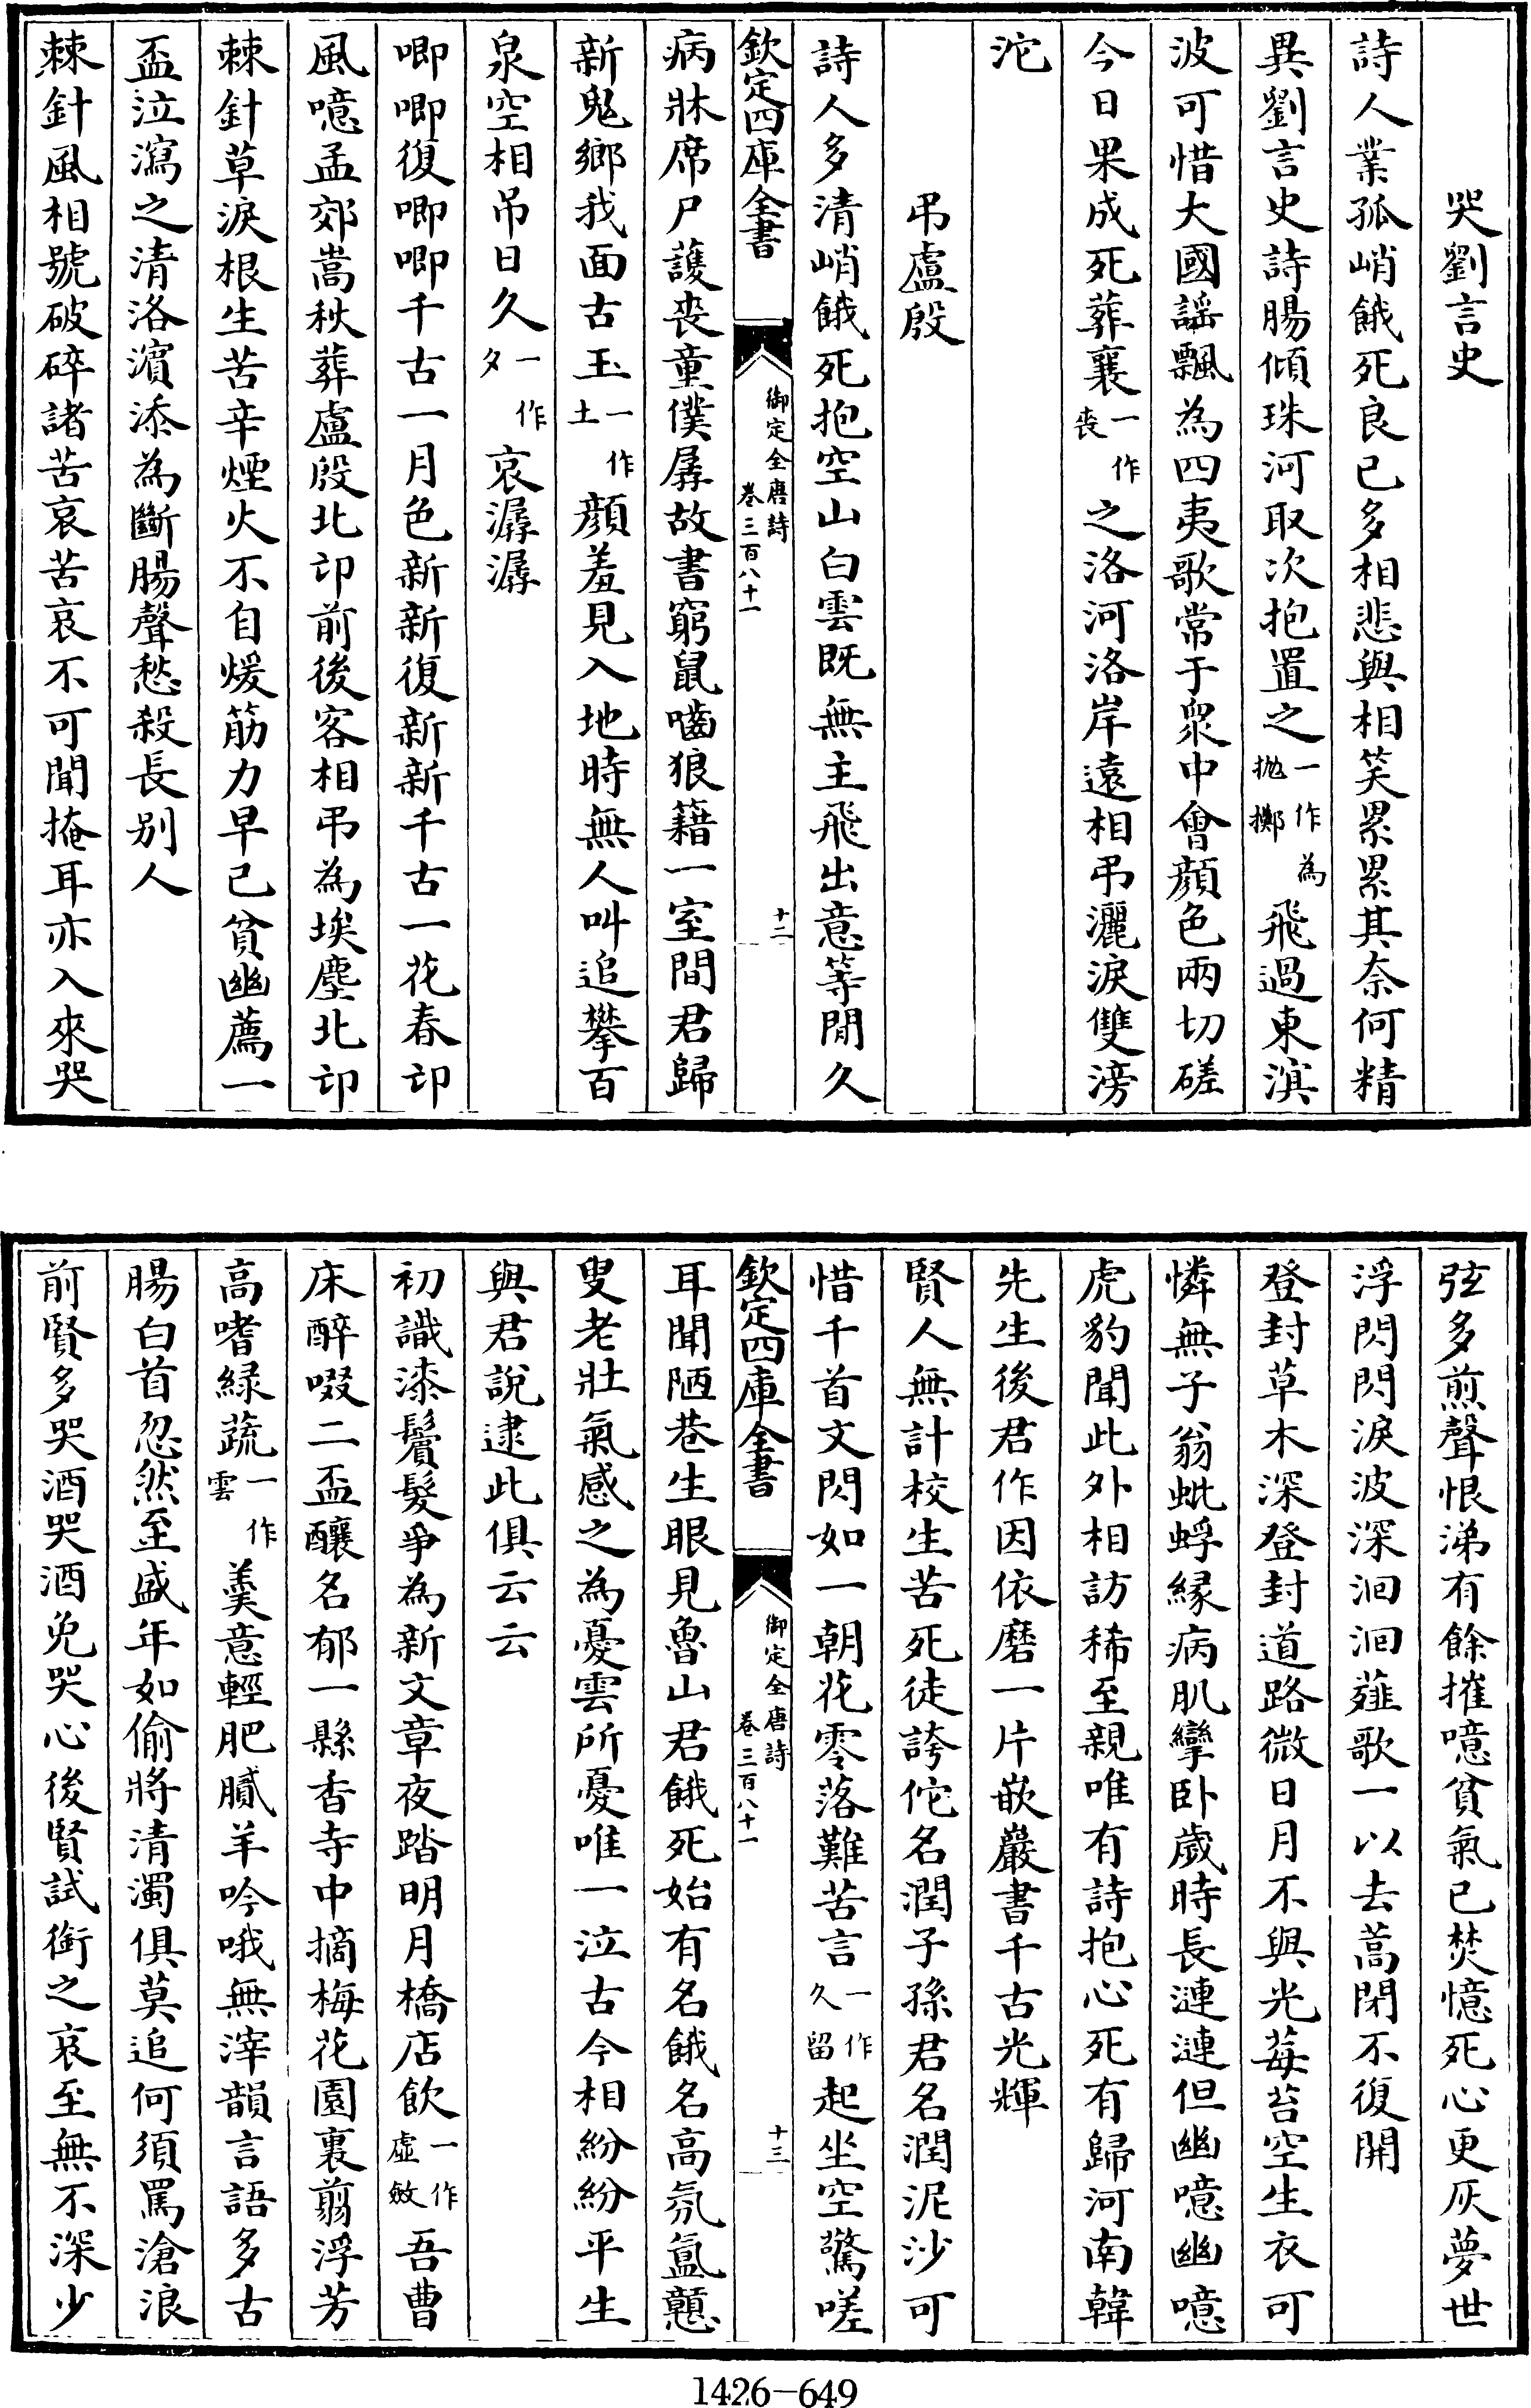 哭劉言史
詩人業孤峭餓死良已多相悲與相笑累累其奈何精
異劉言史詩腸傾珠河取次抱置之一作為拋擲飛過東溟
波可惜大國謡飄為四夷歌常于衆中會顔色兩切磋
今日果成死葬襄一作喪之洛河洛岸遠相弔灑淚雙滂
沱
弔盧殷
詩人多清峭餓死抱空山白雲既無主飛出意等閒久
欽定四庫全書
御定全唐詩
卷三百八十一
十二
病牀席尸䕶喪童僕孱故書窮鼠嚙狼籍一室間君歸
新鬼鄉我面古玉一作土顔羞見入地時無人叫追攀百
泉空相吊日久一作夕哀潺潺
唧唧復唧唧千古一月色新新復新新千古一花春卭
風噫孟郊嵩秋葬盧殷北卭前後客相弔為埃塵北卭
棘針草淚根生苦辛煙火不自煖筋力早已貧幽薦一
盃泣瀉之清洛濵添為斷腸聲愁殺長别人
棘針風相號破碎諸苦哀苦哀不可聞掩耳亦入來哭
弦多煎聲恨涕有餘摧噫貧氣已焚憶死心更灰夢世
浮閃閃淚波深洄洄薤歌一以去蒿閉不復開
登封草木深登封道路微日月不與光莓苔空生衣可
憐無子翁蚍蜉緣病肌攣卧歲時長漣漣但幽噫幽噫
虎豹聞此外相訪稀至親唯有詩抱心死有歸河南韓
先生後君作因依磨一片嵌巖書千古光輝
賢人無計校生苦死徒誇佗名潤子孫君名潤泥沙可
惜千首文閃如一朝花零落難苦言一作久留起坐空驚嗟
欽定四庫全書
御定全唐詩
卷三百八十一
十三
耳聞陋巷生眼見魯山君餓死始有名餓名高氛氲戇
叟老壯氣感之為憂雲所憂唯一泣古今相紛紛平生
與君說逮此俱云云
初識漆鬢髮爭為新文章夜踏明月橋店飲一作虛斂吾曹
床醉啜二盃釀名郁一縣香寺中摘梅花園裏翦浮芳
高嗜緑蔬一作雲羮意輕肥膩羊吟哦無滓韻言語多古
腸白首忽然至盛年如偷將清濁俱莫追何須罵滄浪
前賢多哭酒哭酒免哭心後賢試銜之哀至無不深少
1426-649